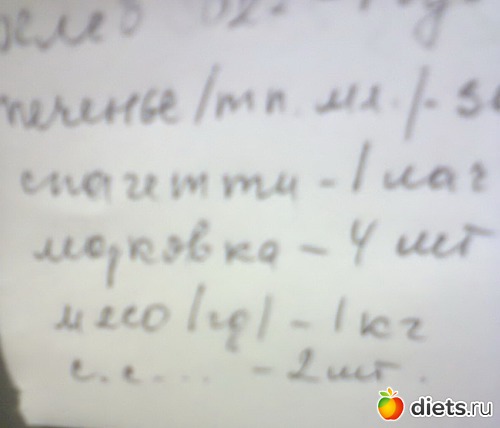 хлеб
печенье /тп. мл./-
спагетти - 1 пач
морковка - 4 шт
мясо /гф/ - 1 кг
с.с.... - 2 шт.
diets.ru